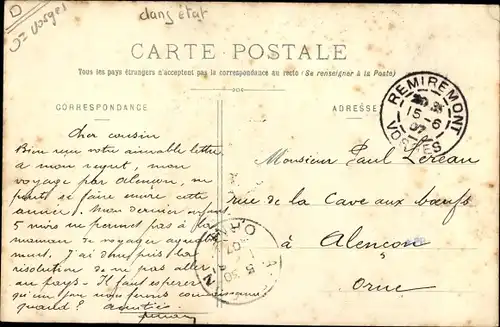 D
Vosges
dans état
CARTE POSTALE
Tous les pays étrangers n'acceptent pas la correspondance au recto (Se renseigner à la Poste)
CORRESPONDANCE
ADRESSE
REMIREMONT
15-6
07
VOSGES
Cher cousin
Bien reçu votre aimable lettre
a mon regret, mon
voyage par Alençon, ne
peut se faire encore cette
année. Mon dernier enfant
5 mois ne permet pas à la
maman de voyager
nuit. J'ai donc pris la
résolution de ne pas aller
au pays. Il faut espérer
qu'un jour nous ferons connaissance
quand?
Monsieur Paul Lereau
rue de la Cave aux bœufs
à Alençon
Orne